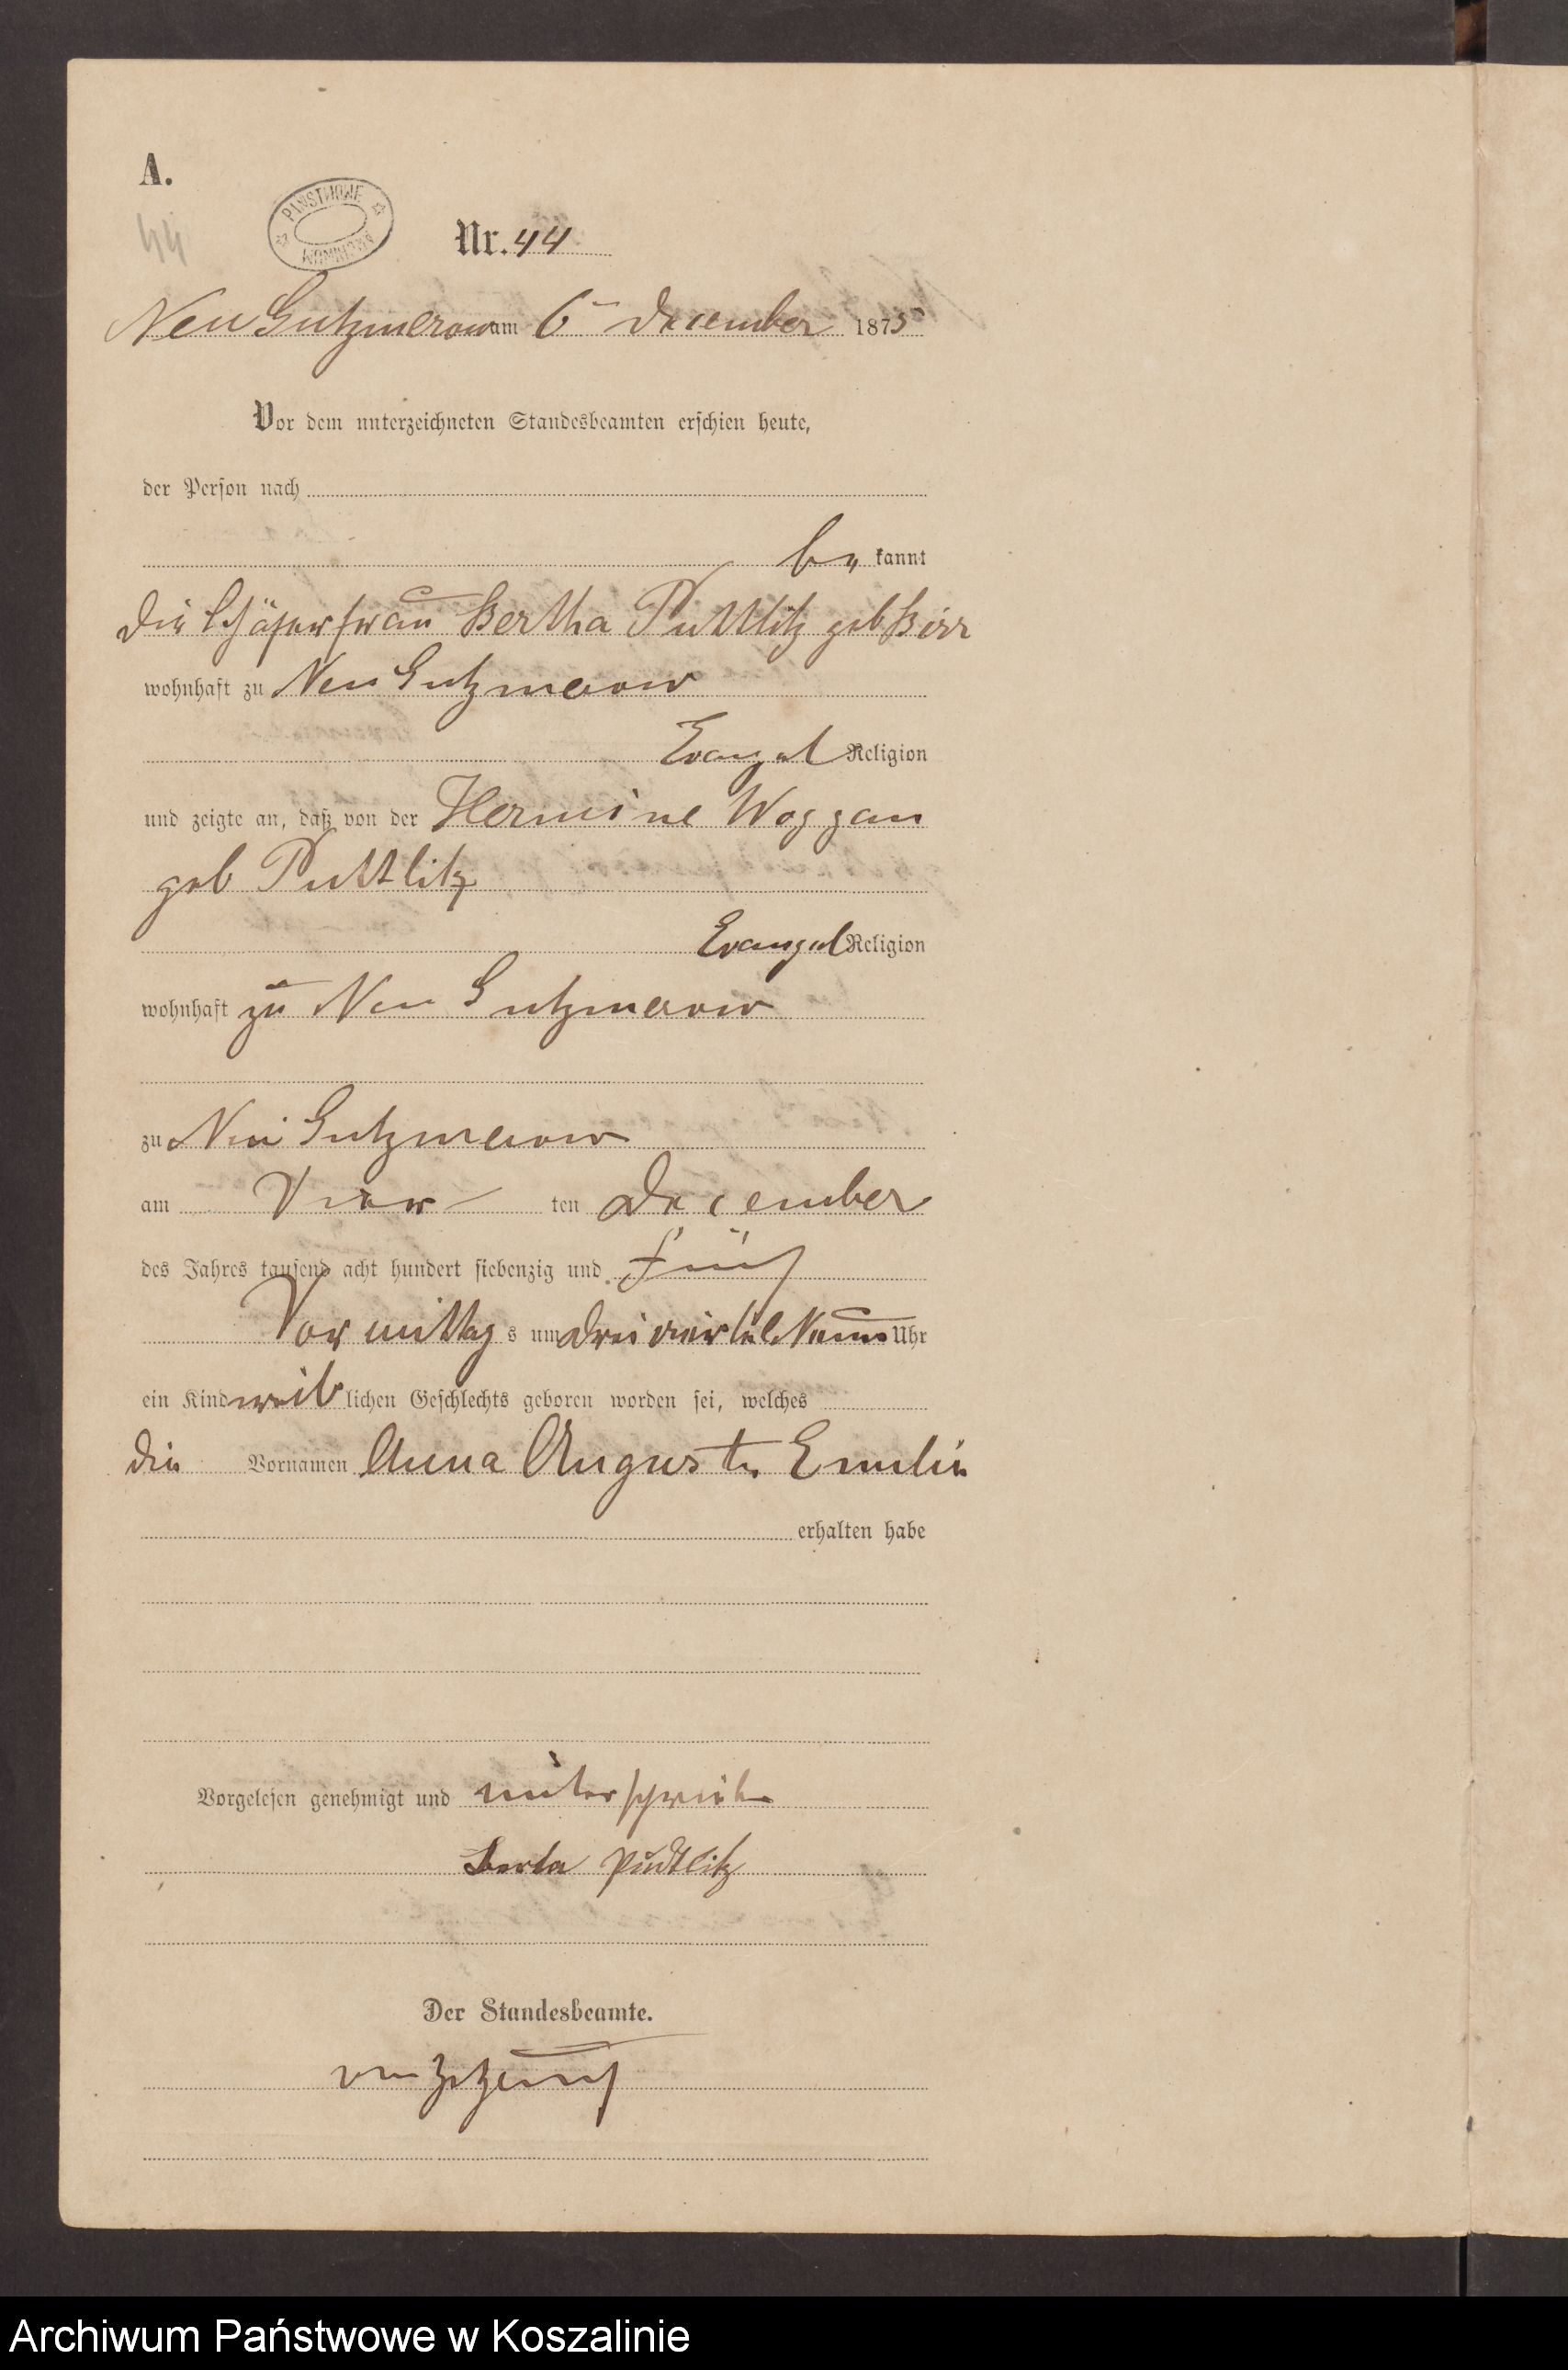 A.
44
PAŃSTWOWE ARCHIWUM
Nr. 44
Neu Gutzmerow am 6ᵗᵉⁿ December 1875
Vor dem unterzeichneten Standesbeamten erschien heute,
der Person nach
be kannt
die Schäferfrau Bertha Puttlitz geb Birr
wohnhaft zu Neu Gutzmerow
Evangel Religion
und zeigte an, daß von der Hermine Woggan
geb Puttlitz
Evangel Religion
wohnhaft zu Neu Gutzmerow
zu Neu Gutzmerow
am Vier ten December
des Jahres tausend acht hundert siebenzig und fünf
Vor mittag s um drei viertel Neun Uhr
ein Kind weib lichen Geschlechts geboren worden sei, welches
die Vornamen Anna Auguste Emilie
erhalten habe
Vorgelesen genehmigt und unterschrieben
Berta Puttlitz
Der Standesbeamte.
von
Archiwum Państwowe w Koszalinie